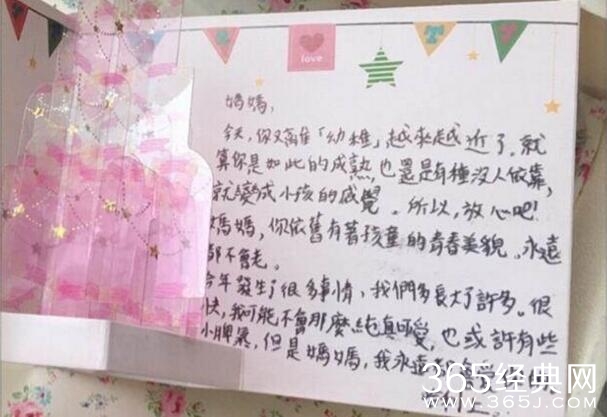 love
T
T
媽媽,
今天,你又離「幼稚」越來越近了。就
算你是如此的成熟,也還是有種沒人依靠,
就變成小孩的感覺。所以,放心吧!
媽媽,你依舊有著孩童的青春美貌。永遠
都不會老。
今年發生了很多事情,我們多長大了許多。很
快,我可能不會那麼純真可愛,也或許有些
小脾氣,但是媽媽,我永遠
365经典网
WWW.365J.COM